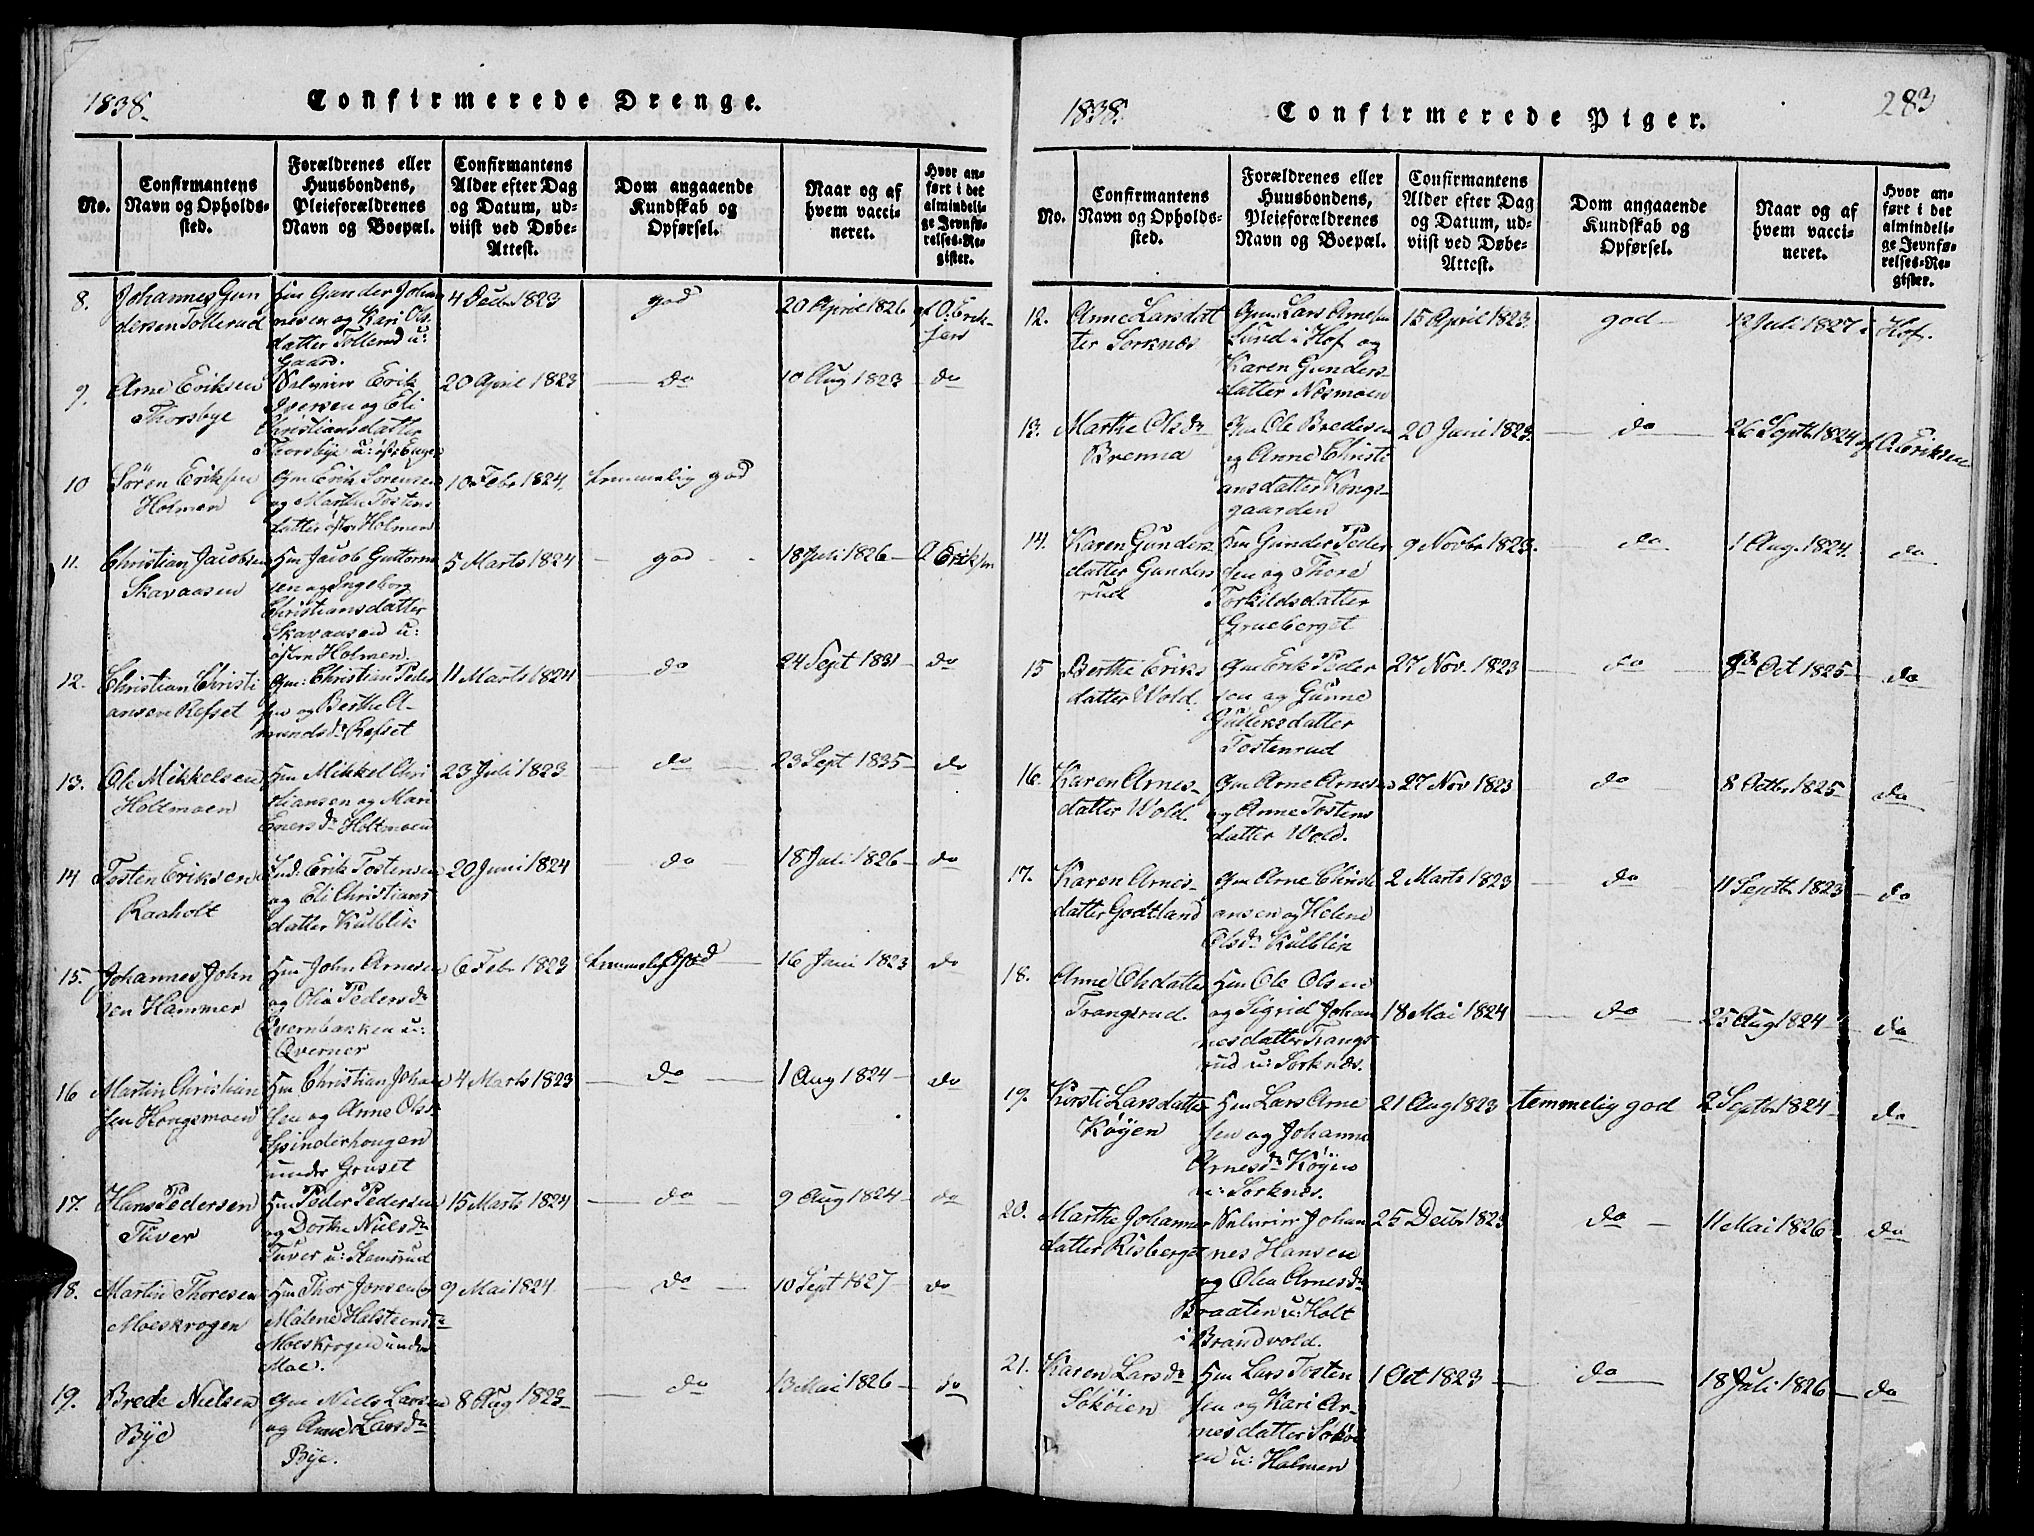 1838.
Confirmerede Drenge.
No.
Confirmantens
Navn og Opholds-
sted.
Forældrenes eller
Huusbondens,
Pleieforældrenes
Navn og Boepæl.
Confirmantens
Alder efter Dag
og Datum, ud-
viist ved Døbe-
Attest.
Dom angaaende
Kundskab og
Opførsel.
Naar og af
hvem vacci-
neret.
Hvor an-
ført i det
almindeli-
ge Jevnfø-
relses-Re-
gister.
8.
Johannes Gun
dersen Tollerud
Hm Gunder Johan
nesen og Kari Ols
datter Tollerud u:
Gaard.
4 Decbr 1823
god
20 April 1826
af O. Erik-
sen
9.
Arne Eriksen
Thorsbye
Selveier Erik
Iversen og Eli
Christiansdatter
Thorsbye u:
20 April 1823
do
10 Aug 1823
do
10
Søren Eriksen
Holmen
Gm Erik Sørensen
og Marthe Tostens
datter østre Holmen
10 Febr 1824.
temmelig god
11.
Christian Jacobsen
Skavaasen
Hm Jacob Guttorm
sen og Ingeborg
Christiansdatter
Skavaasen u:
østre Holmen
5 Marts 1824
god
18 Juli 1826
O Eriksen
12.
Christian Christi
ansen Refset
Gm: Christian Peder
sen og Berthe A-
mundsdr Refset
11 Marts 1824
do
24 Sept 1831
do
13.
Ole Mikkelsen
Holtmoen
Hm Mikkel Chri
stiansen og Mari
Enersdr Holtmoen
23 Juli 1823
do
23 Sept 1835
do
14
Tosten Eriksen
Raaholt
Ind. Erik Tostensen
og Eli Christians
datter Kulblik
20 Juni 1824
do
18 Juli 1826
do
15.
Johannes John
sen Hammer
Hm John Arnesen
og Olia Pedersdr
Qvernbakken u:
Qverner
6 Febr 1823
temmelig god
16 Juni 1823
do
16
Martin Christian
sen Kongsmoen
Hm Christian Johan
sen og Anne Olsd
Spinderhougen
under Gruset
4 Marts 1823
do
1 Aug 1824
do
17.
Hans Pedersen
Tüver
Hm Peder Pedersen
og Dorthe Nielsdr
Tüver u: Stemsrud
15 Marts 1824
do
9 Aug 1824
do
18.
Martin Thoresen
Moeskrogen
Hm Thor Jonsen og
Malene Halsteensdr
Moeskrogen under
Moe.
9 Mai 1824
do
10 Sept 1827
do
19.
Brede Nielsen
Bye
Gm Niels Larsen
og Anne Larsdr
Bye.
8 Aug 1823
do
13 Mai 1826
do
1838.
Confirmerede Piger.
283
No.
Confirmantens
Navn og Opholds-
sted.
Forældrenes eller
Huusbondens,
Pleieforældrenes
Navn og Boepæl.
Confirmantens
Alder efter Dag
og Datum, ud-
viist ved Døbe-
Attest.
Dom angaaende
Kundskab og
Opførsel.
Naar og af
hvem vacci-
neret.
Hvor an-
ført i det
almindeli-
ge Jevnfø-
relses-Re-
gister.
12.
Anne Larsdat
ter Sorknæs
Gm Lars Arnesen
Lund i Hof og
Karen Gunders-
datter Næsmoen
15 April 1823.
god
12 Juli 1827 i
Hof.
13.
Marthe Olsdr
Brenna
Gm Ole Bredesen
og Anne Christi
ansdatter Kongs-
gaarden
20 Juni 1823.
do
26 Septb 1824
af O. Eriksen
14.
Karen Gunders-
datter Gunders
rud
Hm Gunder Peder
sen og Thore
Torkildsdatter
Grueberget
9 Novbr 1823.
do
1 Aug. 1824.
do
15
Berthe Eriks
datter Wold.
Gm Erik Peder
sen og Gunne
Gulliksdatter
Tostenrud
27 Nov. 1823
do
8de Oct 1825
do
16.
Karen Arnes-
datter Wold.
Gm Arne Arnesen
og Anne Tostens
datter Wold.
27 Nov 1823
do
8 Octbr 1825
do
17.
Karen Arnes-
datter Godtland
Gm Arne Christi
ansen og Helene
Olsdr Kulblik
2 Marts 1823
do
11 Septb 1823
do
18.
Anne Olsdatter
Trangsrud.
Hm Ole Olsen
og Sigrid Johan
nesdatter Trangs
rud u: Sorknæs.
18 Mai 1824
do
25 Aug 1824
do
19.
Kirsti Larsdatter
Køÿen
Hm Lars Arne
sen og Johanne
Arnesdr Køÿen
u: Sorknes.
21 Aug 1823
temmelig god
2 Septbr 1824
do
20.
Marthe Johannes
datter Risberget
Selveier Johan
nes Hansen
og Olea Arnesdr
Braaten u: Holt
i Brandvold.
25 Decbr 1823
do
11 Mai 1826
do
21.
Karen Larsdr
Søkøien
Hm Lars Tosten
sen og Kari Ar-
nesdatter Søkøi
en u: Holmen
1 Oct 1823
do
18 Juli 1826
do